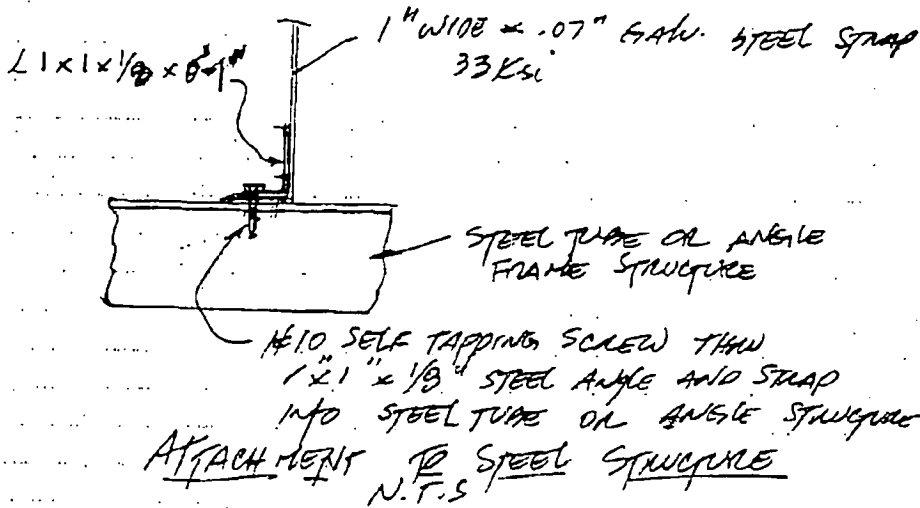 1" WIDE x .07" GALV. STEEL STRAP
33 Ksi
L 1 x 1 x 1/8 x 0'-1"
STEEL TUBE OR ANGLE
FRAME STRUCTURE
#10 SELF TAPPING SCREW THRU
1" x 1" x 1/8" STEEL ANGLE AND STRAP
INTO STEEL TUBE OR ANGLE STRUCTURE
ATTACHMENT TO STEEL STRUCTURE
N.T.S